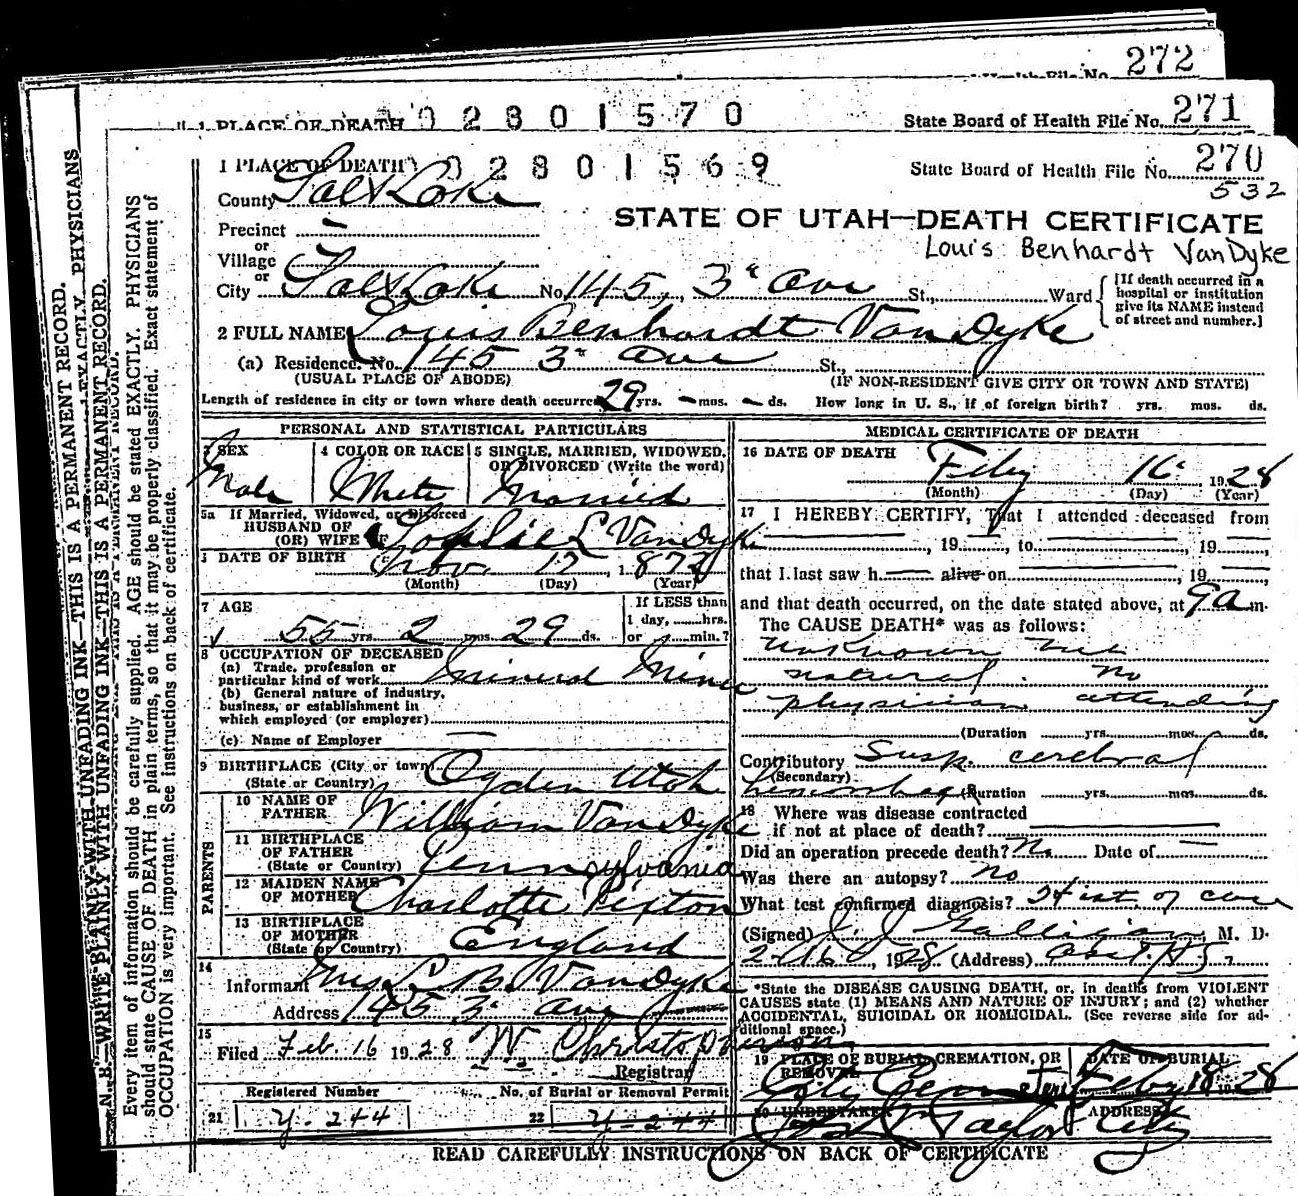 272
1 PLACE OF DEATH 02801570 State Board of Health File No. 271
1 PLACE OF DEATH 02801569 State Board of Health File No. 270
532
County Salt Lake
STATE OF UTAH—DEATH CERTIFICATE
Precinct —
Louis Benhardt VanDyke
or
Village
or
City Salt Lake No. 145, 3d Ave St., Ward
[If death occurred in a hospital or institution give its NAME instead of street and number.]
2 FULL NAME Louis Benhardt Van Dyke
(a) Residence. No. 145 3d Ave St.,
(USUAL PLACE OF ABODE) (IF NON-RESIDENT GIVE CITY OR TOWN AND STATE)
Length of residence in city or town where death occurred 29 yrs. — mos. — ds. How long in U. S., if of foreign birth? yrs. mos. ds.
PERSONAL AND STATISTICAL PARTICULARS
3 SEX Male
4 COLOR OR RACE White
5 SINGLE, MARRIED, WIDOWED, OR DIVORCED (Write the word) Married
5a If Married, Widowed, or Divorced
HUSBAND OF
(OR) WIFE OF Sophie L Van Dyke
DATE OF BIRTH Nov. 17, 1872
(Month) (Day) (Year)
7 AGE 55 yrs. 2 mos. 29 ds.
If LESS than
1 day, hrs.
or min.?
8 OCCUPATION OF DECEASED
(a) Trade, profession or
particular kind of work
(b) General nature of industry,
business, or establishment in
which employed (or employer)
(c) Name of Employer —
9 BIRTHPLACE (City or town) Ogden Utah
(State or Country)
PARENTS
10 NAME OF FATHER William Van Dyke
11 BIRTHPLACE OF FATHER (State or Country) Pennsylvania
12 MAIDEN NAME OF MOTHER Charlotte Pixton
13 BIRTHPLACE OF MOTHER (State or Country) England
14
Informant Mrs L. B. Van Dyke
Address 145 3d Ave
15
Filed Feb. 16 1928 W. Christopherson
Registrar
Registered Number No. of Burial or Removal Permit
21 Y-244 22 Y-244
MEDICAL CERTIFICATE OF DEATH
16 DATE OF DEATH Feby 16 1928
(Month) (Day) (Year)
17 I HEREBY CERTIFY, That I attended deceased from
, 19 , to , 19 ,
that I last saw h alive on , 19 ,
and that death occurred, on the date stated above, at 9 a m.
The CAUSE DEATH* was as follows:
Unknown but
natural. No
physician attending
(Duration yrs. mos. ds.
Contributory Susp. cerebral
(Secondary)
hemorrhage (Duration yrs. mos. ds.
18 Where was disease contracted
if not at place of death?
Did an operation precede death? No Date of —
Was there an autopsy? no
What test confirmed diagnosis? Hist. of case
(Signed) J. J. Galligan M. D.
2-16, 1928 (Address)
*State the DISEASE CAUSING DEATH, or, in deaths from VIOLENT
CAUSES state (1) MEANS AND NATURE OF INJURY; and (2) whether
ACCIDENTAL, SUICIDAL OR HOMICIDAL. (See reverse side for ad-
ditional space.)
19 PLACE OF BURIAL, CREMATION, OR REMOVAL City Cemetery
DATE OF BURIAL Feby 18 1928
20 UNDERTAKER Taylor
ADDRESS City
READ CAREFULLY INSTRUCTIONS ON BACK OF CERTIFICATE
N. B.—WRITE PLAINLY WITH UNFADING INK—THIS IS A PERMANENT RECORD.
Every item of information should be carefully supplied. AGE should be stated EXACTLY. PHYSICIANS
should state CAUSE OF DEATH in plain terms, so that it may be properly classified. Exact statement of
OCCUPATION is very important. See instructions on back of certificate.